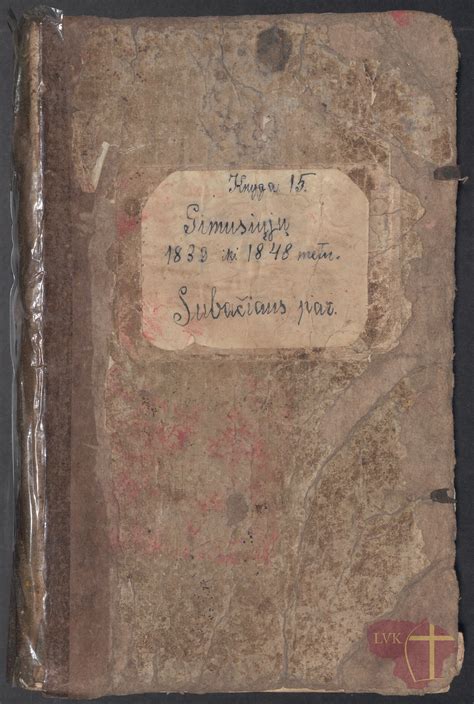 Knyga 15.
Gimusiųjų
1839 iki 1848 metų.
Subačiaus par.
LVK